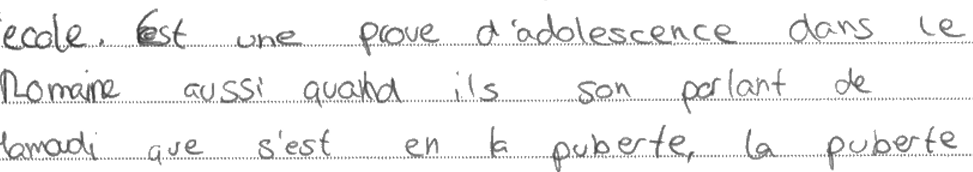 ecole. Est une prove d'adolescence dans le
Romaine aussi quand ils son parlant de
Hamadi que s'est en la puberte, la puberte